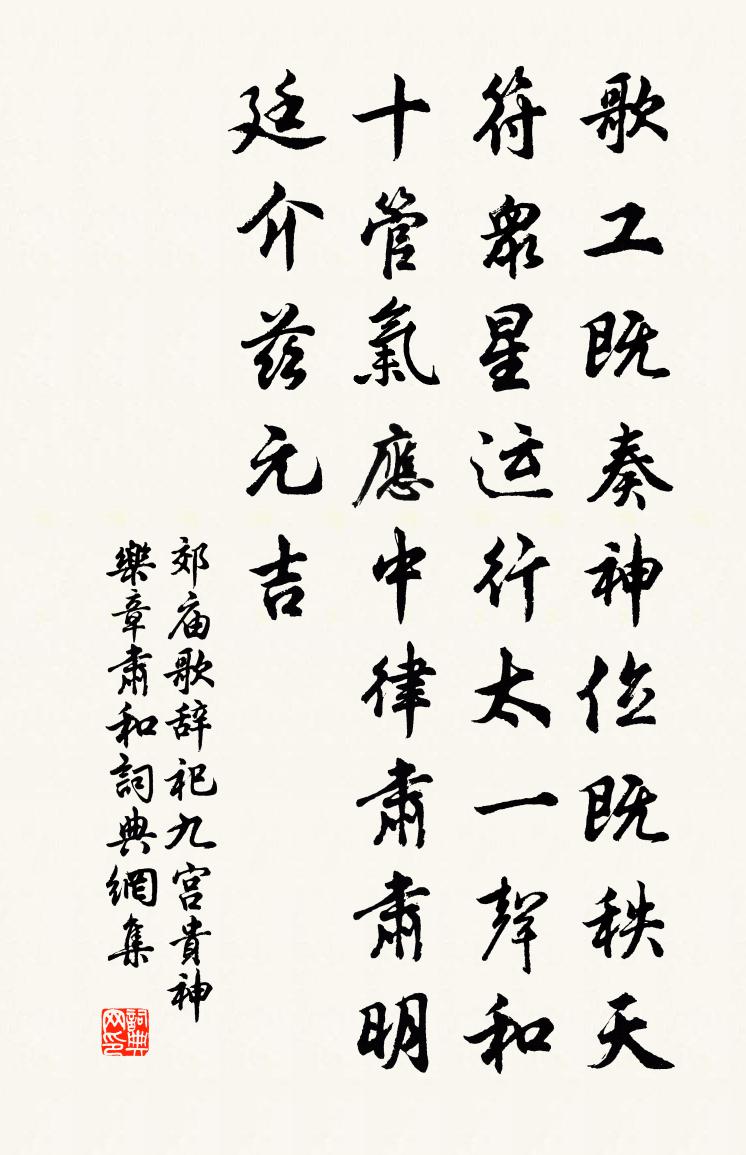 歌工既奏神位既秩天
符眾星运行太一聲和
十管氣應中律肅肅明
廷介兹元吉
郊庙歌辞祀九宫貴神
樂章肅和詞典網集
詞典
网印